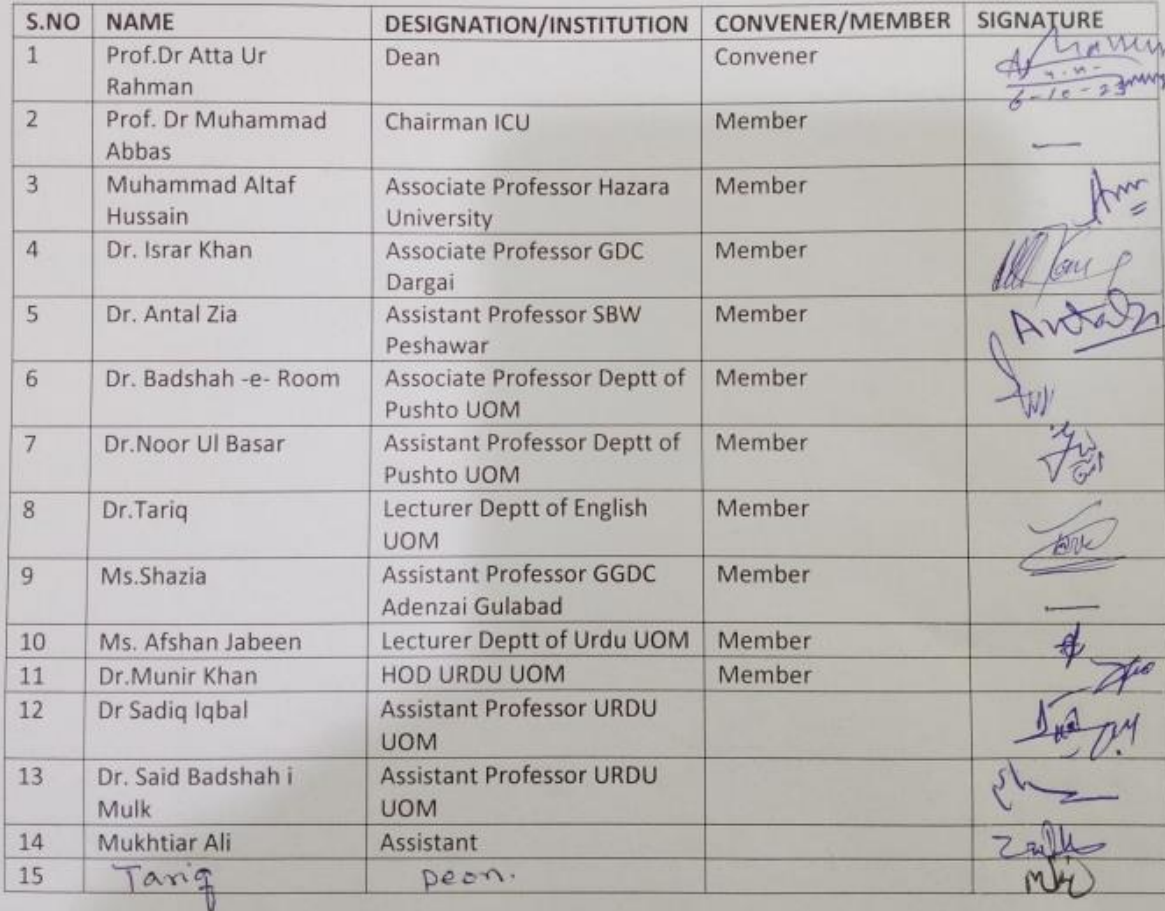 S.NO NAME DESIGNATION/INSTITUTION CONVENER/MEMBER SIGNATURE
1 Prof.Dr Atta Ur Dean Convener
Rahman
6-10-23
2 Prof. Dr Muhammad Chairman ICU Member —
Abbas
3 Muhammad Altaf Associate Professor Hazara Member
Hussain University
4 Dr. Israr Khan Associate Professor GDC Member
Dargai
5 Dr. Antal Zia Assistant Professor SBW Member
Peshawar
6 Dr. Badshah -e- Room Associate Professor Deptt of Member
Pushto UOM
7 Dr.Noor Ul Basar Assistant Professor Deptt of Member
Pushto UOM
8 Dr.Tariq Lecturer Deptt of English Member
UOM
9 Ms.Shazia Assistant Professor GGDC Member —
Adenzai Gulabad
10 Ms. Afshan Jabeen Lecturer Deptt of Urdu UOM Member
11 Dr.Munir Khan HOD URDU UOM Member
12 Dr Sadiq Iqbal Assistant Professor URDU
UOM
13 Dr. Said Badshah i Assistant Professor URDU
Mulk UOM
14 Mukhtiar Ali Assistant
15 Tariq peon.